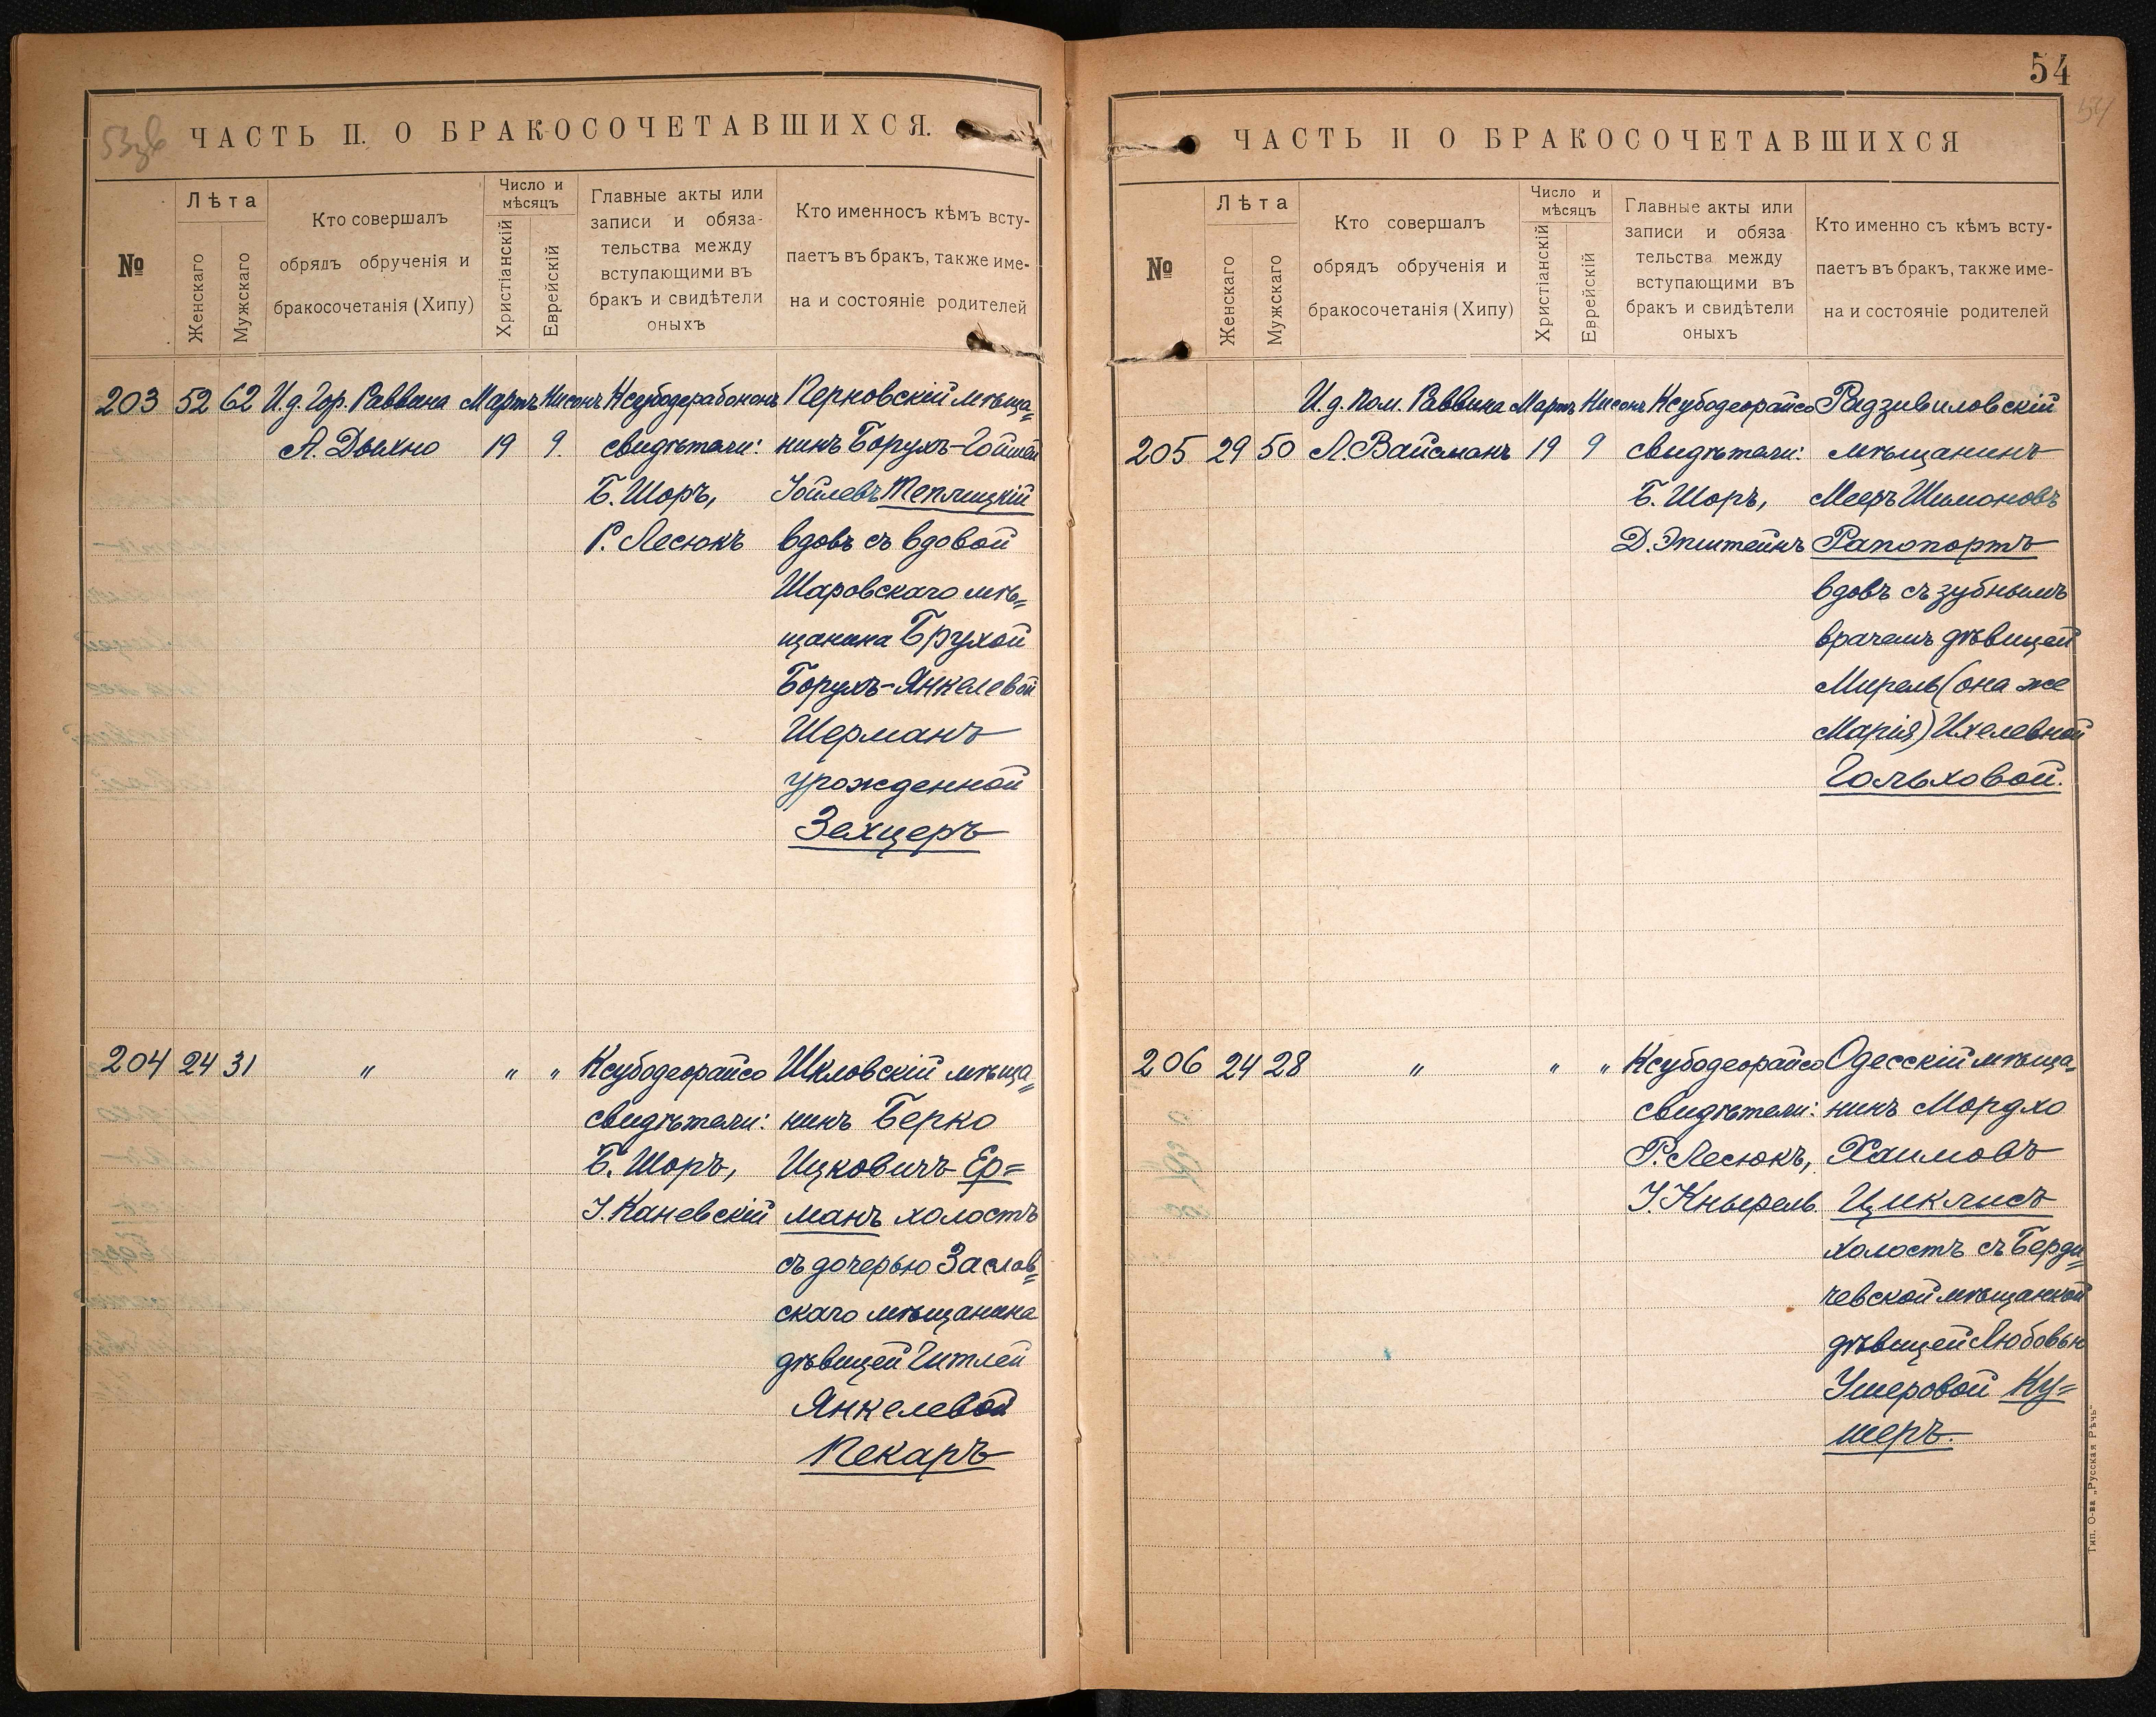 53зв
ЧАСТЬ II. О БРАКОСОЧЕТАВШИХСЯ.
№
Лѣта
Женскаго
Мужскаго
Кто совершалъ
обрядъ обрученія и
бракосочетанія (Хипу)
Число и
мѣсяцъ
Христіанскій
Еврейскій
Главные акты или
записи и обяза-
тельства между
вступающими въ
бракъ и свидѣтели
оныхъ
Кто именносъ кѣмъ всту-
паетъ въ бракъ, также име-
на и состояніе родителей
203 52 62 И.д. Гор. Раввина Мартъ Нисонъ Ксубодерабононъ Перновскій мѣща=
А. Дыхно 19 9. свидѣтели: нинъ Борухъ-Гойшей
Б. Шоръ, Іойлевъ Теплицкій
Р. Лесюкъ вдовъ съ вдовой
Шаровскаго мѣ=
щанина Брухой
Борухъ-Янкелевой
Шерманъ
урожденной
Зехцеръ
204 24 31 " " " Ксубодеорайсо Шкловскій мѣща=
свидѣтели: нинъ Берко
Б. Шоръ, Ицковичъ Ер=
І. Каневскій манъ холостъ
съ дочерью Заслав=
скаго мѣщанина
дѣвицей Гитлей
Янкелевой
Пекаръ
54
54
ЧАСТЬ II О БРАКОСОЧЕТАВШИХСЯ
№
Лѣта
Женскаго
Мужскаго
Кто совершалъ
обрядъ обрученія и
бракосочетанія (Хипу)
Число и
мѣсяцъ
Христіанскій
Еврейскій
Главные акты или
записи и обяза
тельства между
вступающими въ
бракъ и свидѣтели
оныхъ
Кто именно съ кѣмъ всту-
паетъ въ бракъ, также име-
на и состояніе родителей
И.д. Пом. Раввина Мартъ Нисонъ Ксубодеорайсо Радзивиловскій
205 29 50 Л. Вайсманъ 19 9 свидѣтели: мѣщанинъ
Б. Шоръ, Мееръ Шимоновъ
Д. Эпштейнъ Рапопортъ
вдовъ съ зубнымъ
врачемъ дѣвицей
Мирель (она же
Марія) Ихелевной
Гольховой.
206 24 28 " " " Ксубодеорайсо Одесскій мѣща=
свидѣтели: нинъ Мордхо
Р. Лесюкъ, Хаимовъ
І. Кнырель. Циклисъ
холостъ съ Берди=
чевской мѣщанкой
дѣвицей Любовью
Ушеровой Ку=
шеръ.
Тип. О-ва „Русская Рѣчь"